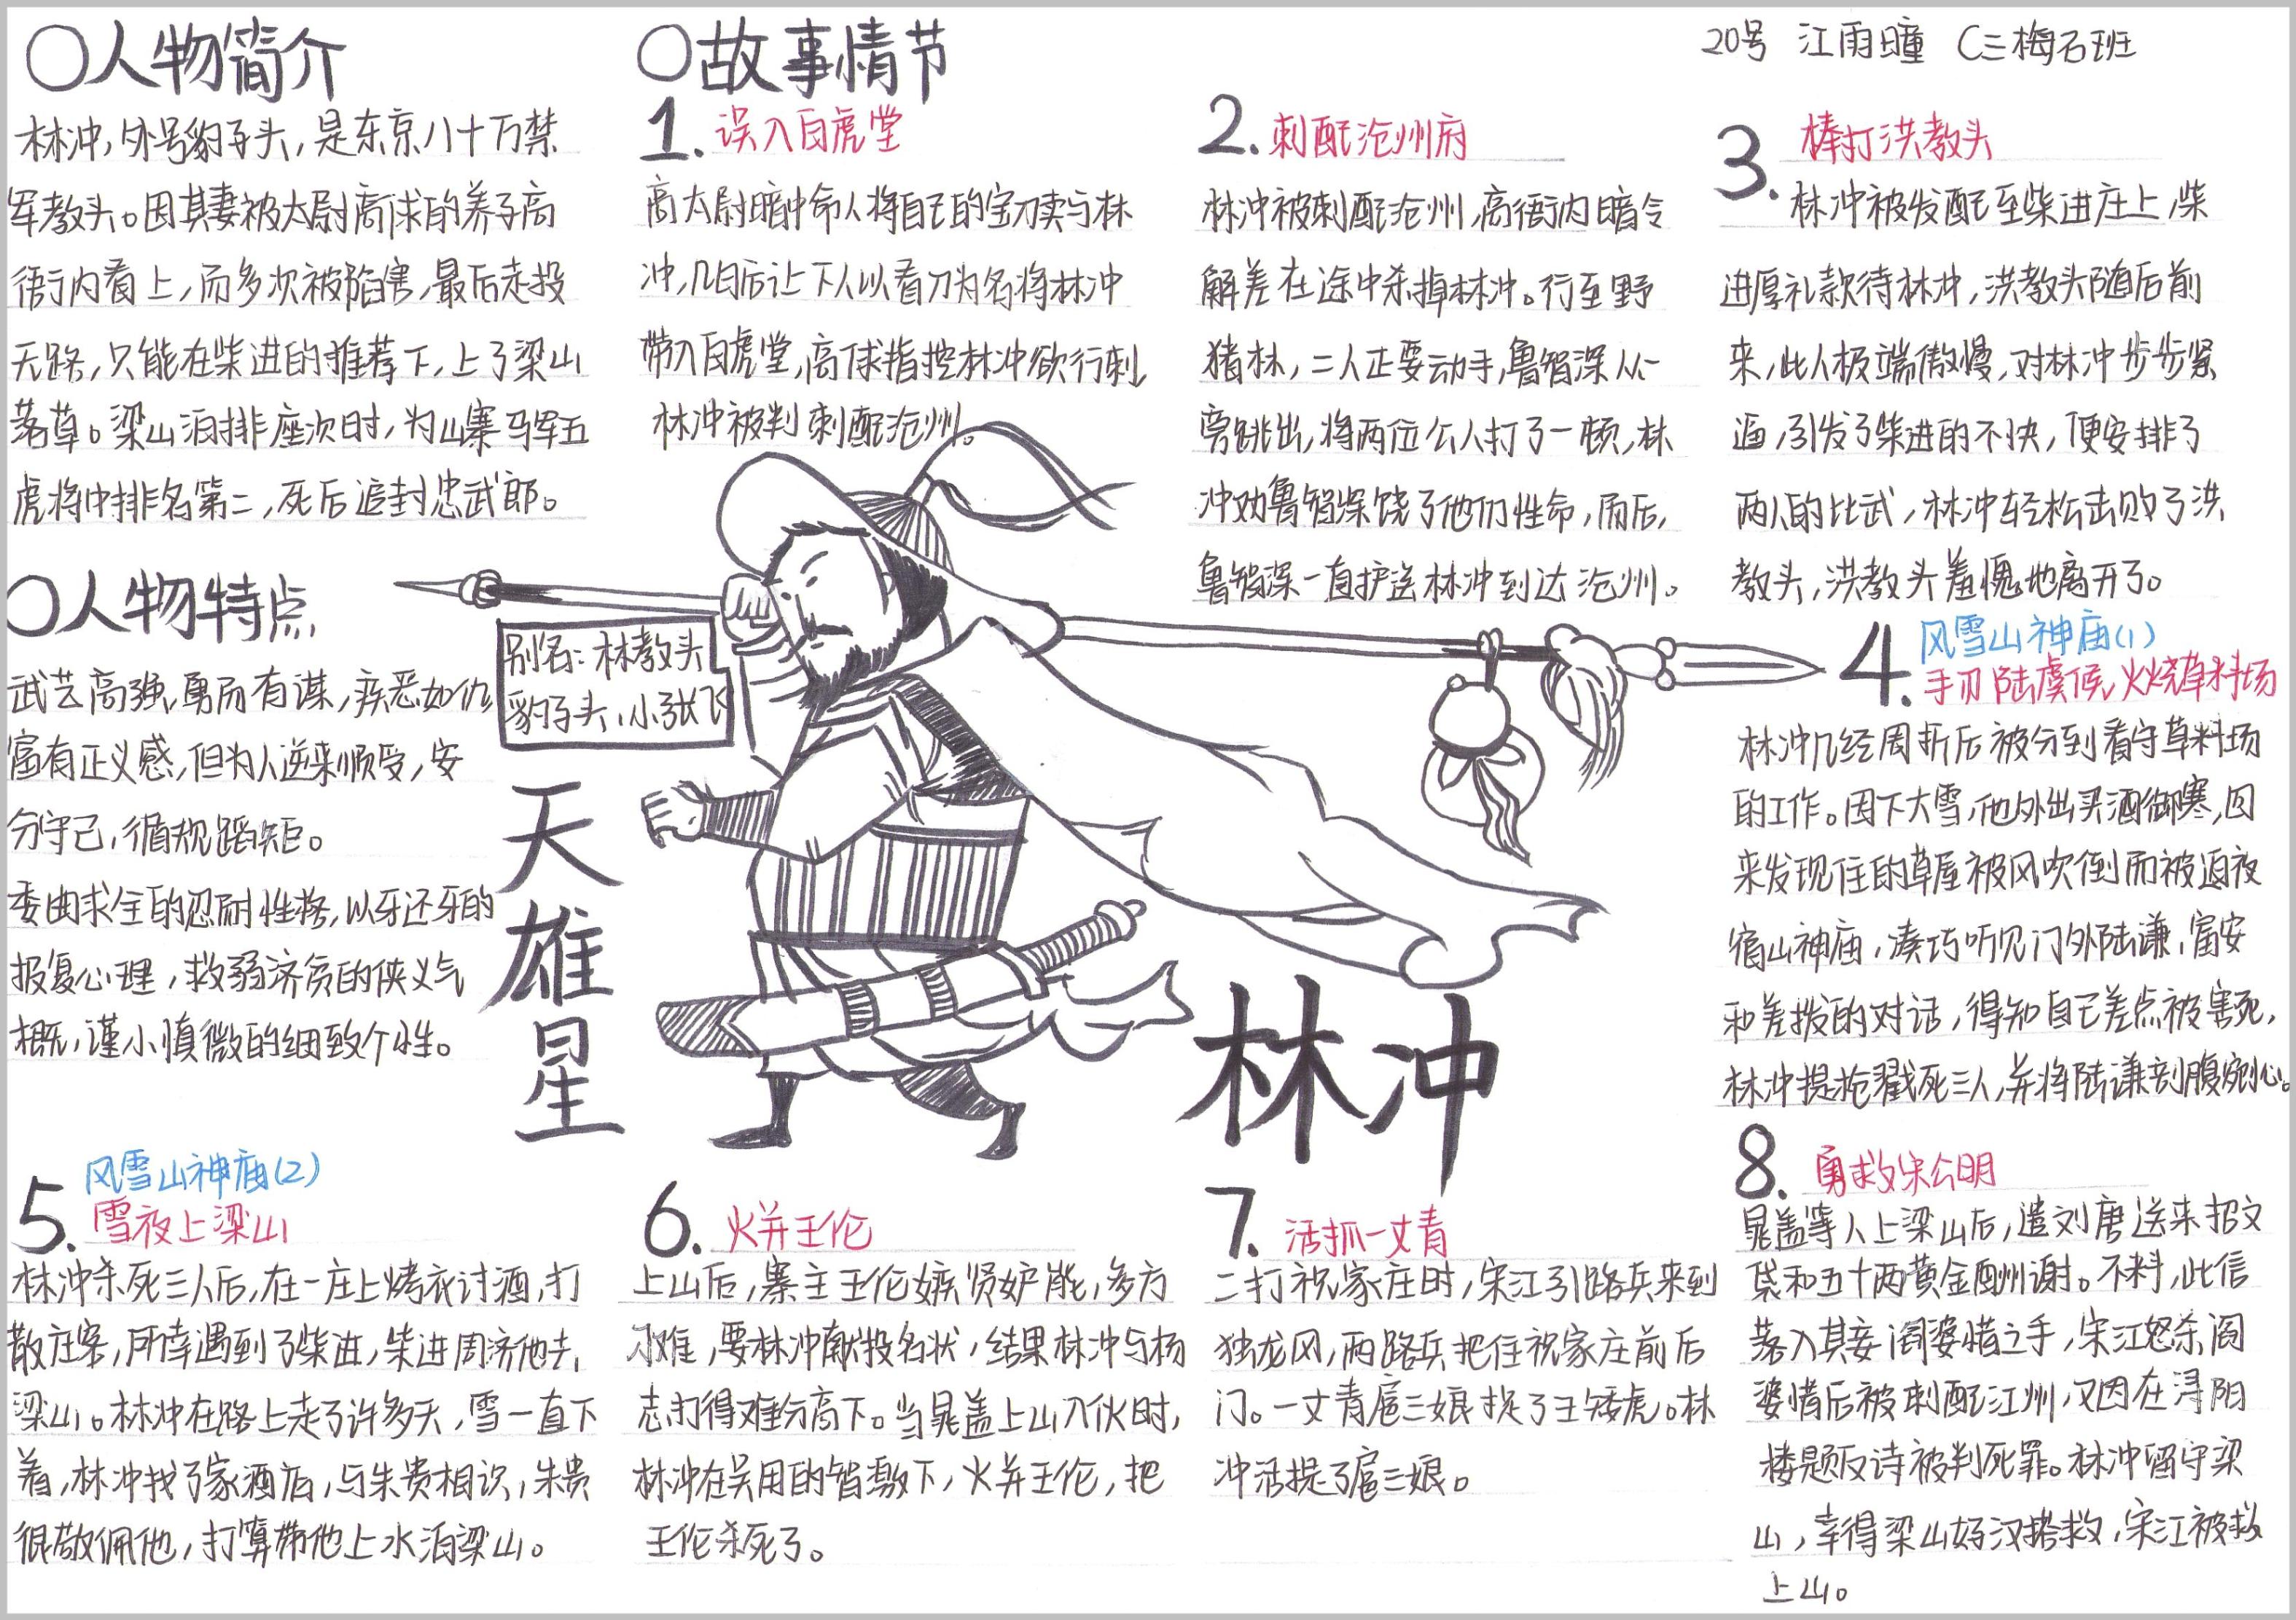 20号 江雨曈 C三梅石班
○人物简介
林冲,外号豹子头,是东京八十万禁
军教头。因其妻被太尉高俅的养子高
衙内看上,而多次被陷害,最后走投
无路,只能在柴进的推荐下,上了梁山
落草。梁山泊排座次时,为山寨马军五
虎将中排名第二,死后追封忠武郎。
○人物特点
武艺高强,勇而有谋,疾恶如仇
富有正义感,但为人逆来顺受,安
分守己,循规蹈矩。
委曲求全的忍耐性格,以牙还牙的
报复心理,救弱济贫的侠义气
概,谨小慎微的细致个性。
○故事情节
1.误入白虎堂
高太尉暗中命人将自己的宝刀卖与林
冲,几日后让下人以看刀为名将林冲
带入白虎堂,高俅指控林冲欲行刺,
林冲被判刺配沧州。
2.刺配沧州府
林冲被刺配沧州,高衙内暗令
解差在途中杀掉林冲。行至野
猪林,二人正要动手,鲁智深从一
旁跳出,将两位公人打了一顿,林
冲劝鲁智深饶了他们性命,而后,
鲁智深一直护送林冲到达沧州。
3.棒打洪教头
林冲被发配至柴进庄上,柴
进厚礼款待林冲,洪教头随后前
来,此人极端傲慢,对林冲步步紧
逼,引发了柴进的不快,便安排了
两人的比武,林冲轻松击败了洪
教头,洪教头羞愧地离开了。
4.风雪山神庙(1)
手刃陆虞候、火烧草料场
林冲几经周折后被分到看守草料场
的工作。因下大雪,他外出买酒御寒,回
来发现住的草屋被风吹倒而被迫夜
宿山神庙,凑巧听见门外陆谦、富安
和差拨的对话,得知自己差点被害死,
林冲提抢戳死三人,并将陆谦剖腹剜心。
别名:林教头
豹子头、小张飞
天雄星
林冲
5.风雪山神庙(2)
雪夜上梁山
林冲杀死三人后,在一庄上烤衣讨酒,打
散庄客,所幸遇到了柴进,柴进周济他去
梁山。林冲在路上走了许多天,雪一直下
着,林冲找了家酒店,与朱贵相识,朱贵
很敬佩他,打算带他上水泊梁山。
6.火并王伦
上山后,寨主王伦嫉贤妒能,多方
刁难,要林冲献投名状,结果林冲与杨
志打得难分高下。当晁盖上山入伙时,
林冲在吴用的智激下,火并王伦,把
王伦杀死了。
7.活抓一丈青
二打祝家庄时,宋江引路兵来到
独龙冈,两路兵把住祝家庄前后
门。一丈青扈三娘捉了王矮虎。林
冲活捉了扈三娘。
8.勇救宋公明
晁盖等人上梁山后,遣刘唐送来招文
袋和五十两黄金酬谢。不料,此信
落入其妾阎婆惜之手,宋江怒杀阎
婆惜后被刺配江州,又因在浔阳
楼题反诗被判死罪。林冲留守梁
山,幸得梁山好汉搭救,宋江被救
上山。